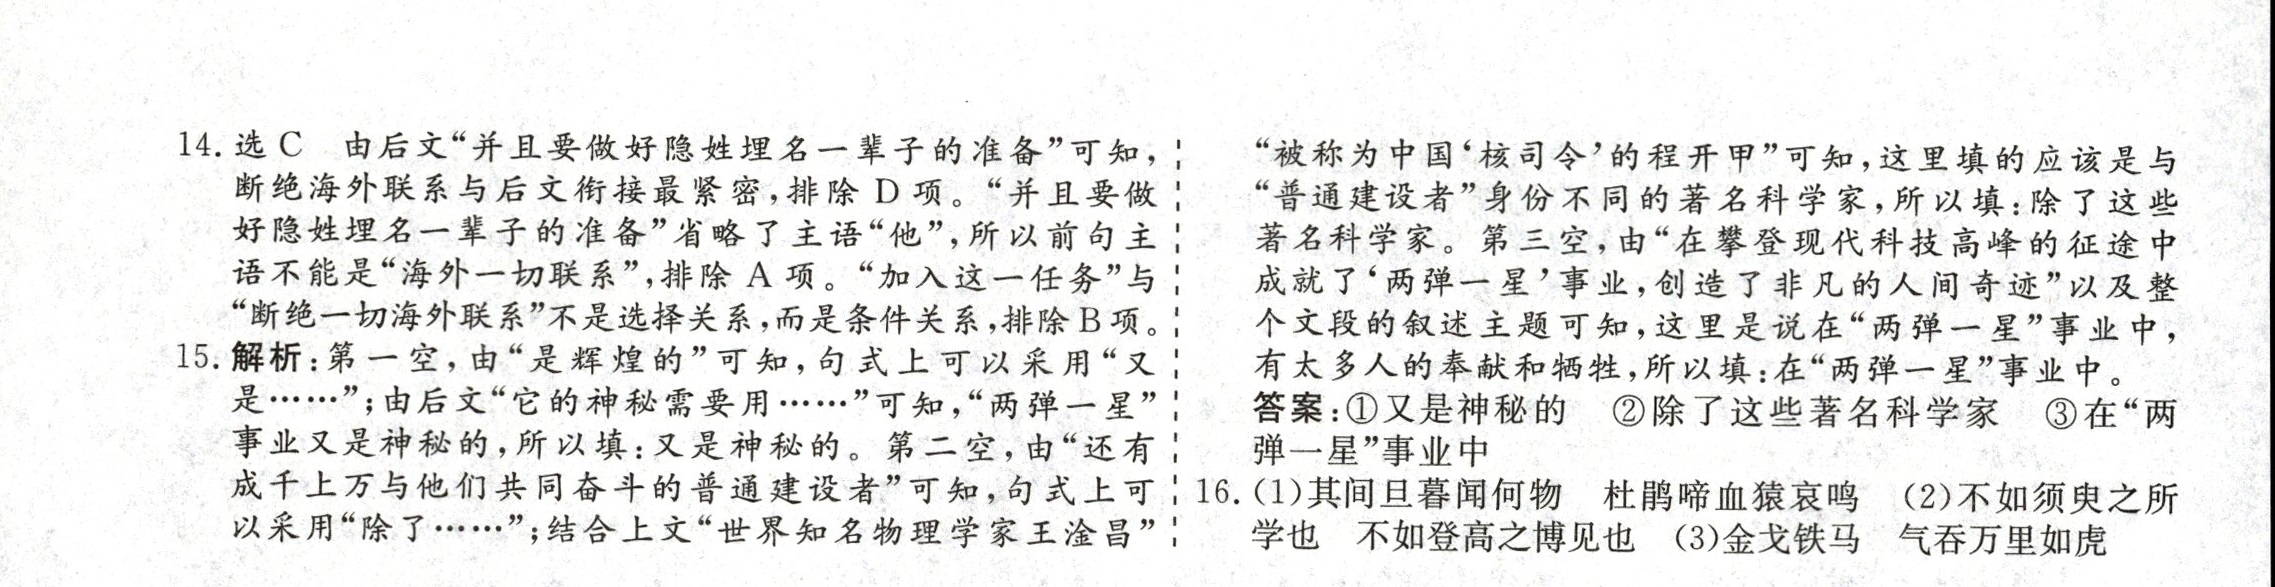 14. 选 C　由后文“并且要做好隐姓埋名一辈子的准备”可知，
断绝海外联系与后文衔接最紧密，排除 D 项。“并且要做
好隐姓埋名一辈子的准备”省略了主语“他”，所以前句主
语不能是“海外一切联系”，排除 A 项。“加入这一任务”与
“断绝一切海外联系”不是选择关系，而是条件关系，排除B项。
15. 解析：第一空，由“是辉煌的”可知，句式上可以采用“又
是……”；由后文“它的神秘需要用……”可知，“两弹一星”
事业又是神秘的，所以填：又是神秘的。第二空，由“还有
成千上万与他们共同奋斗的普通建设者”可知，句式上可
以采用“除了……”；结合上文“世界知名物理学家王淦昌”
“被称为中国‘核司令’的程开甲”可知，这里填的应该是与
“普通建设者”身份不同的著名科学家，所以填：除了这些
著名科学家。第三空，由“在攀登现代科技高峰的征途中
成就了‘两弹一星’事业，创造了非凡的人间奇迹”以及整
个文段的叙述主题可知，这里是说在“两弹一星”事业中，
有太多人的奉献和牺牲，所以填：在“两弹一星”事业中。
答案：①又是神秘的　②除了这些著名科学家　③在“两
弹一星”事业中
16. (1)其间旦暮闻何物　杜鹃啼血猿哀鸣　(2)不如须臾之所
学也　不如登高之博见也　(3)金戈铁马　气吞万里如虎